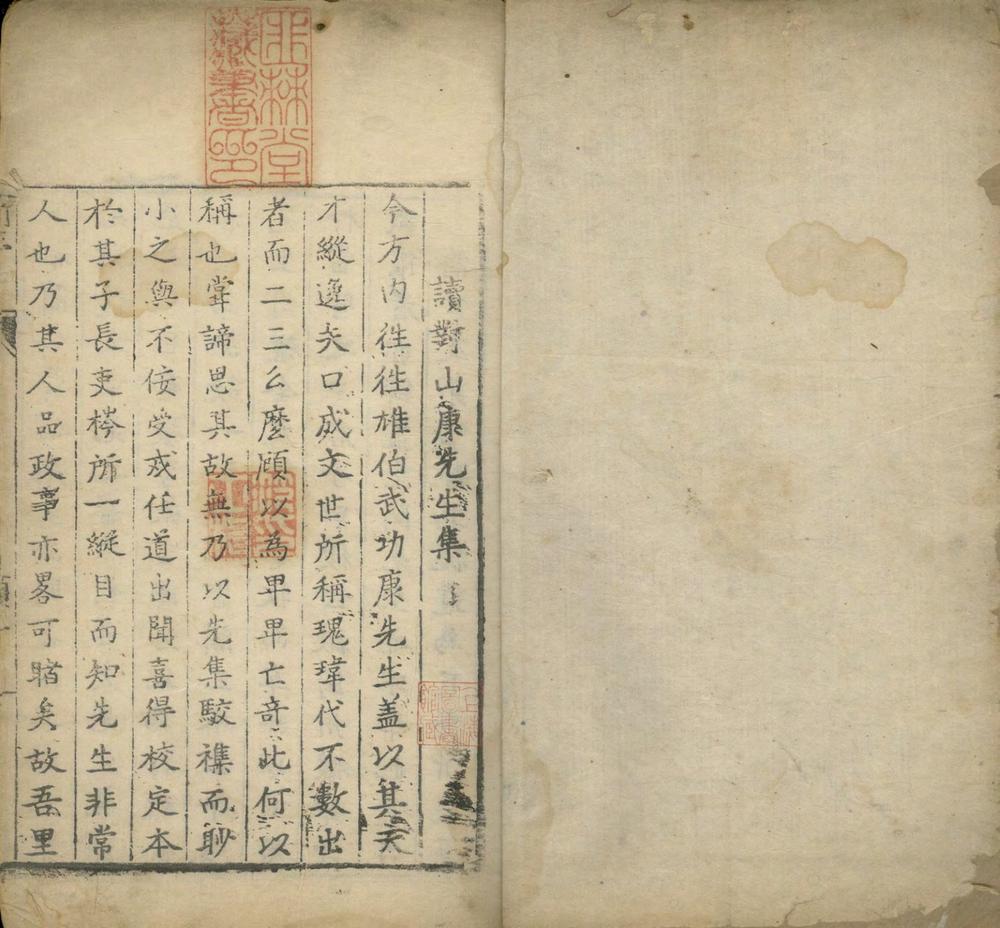 讀對山康先生集
今方内徃徃雄伯武功康先生盖以其天
才縱逸夫口成文世所稱瑰瑋代不數出
者而二三么麼顧以為卑卑亡竒此何以
稱也甞諦思其故無乃以先集駁襍而眇
小之與不佞受戎任道出聞喜得校定本
於其子長吏梣所一縱目而知先生非常
人也乃其人品政事亦畧可睹矣故吾里